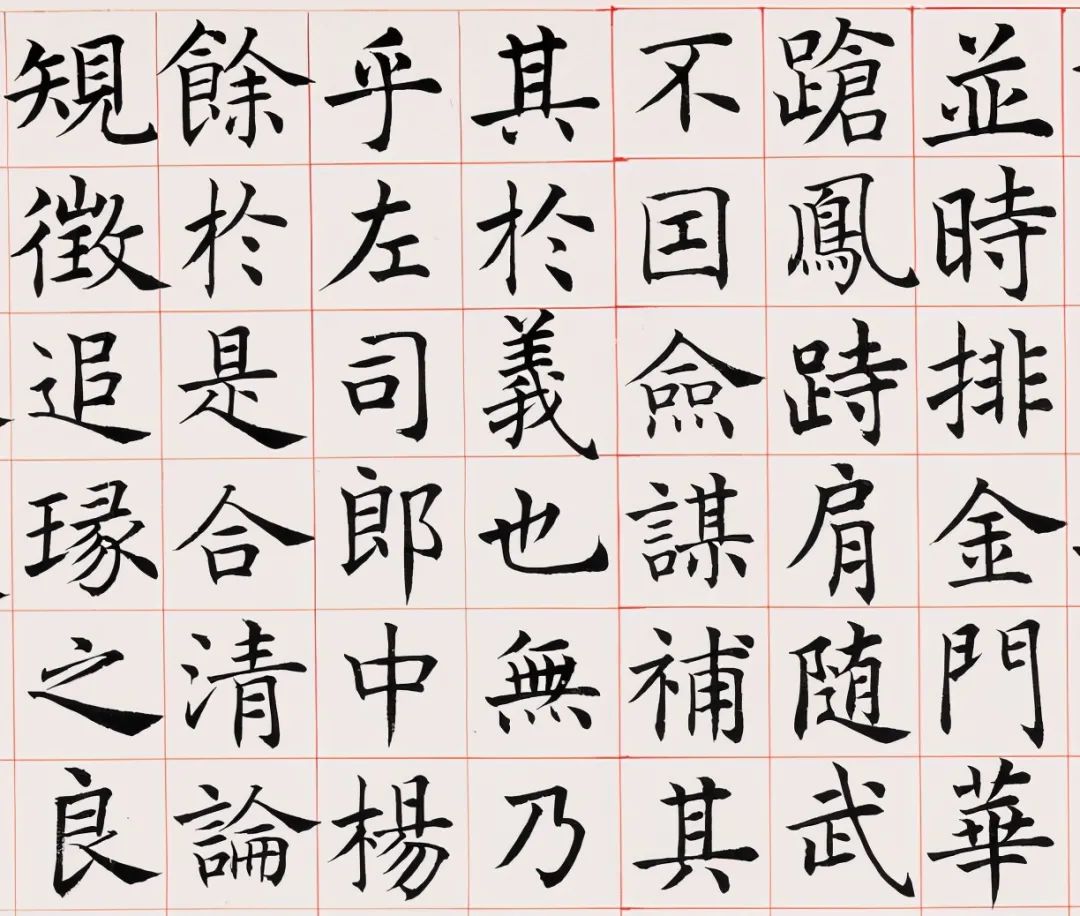 並時排金門華
蹌鳳跱肩随武
不囯僉謀補其
其於義也無乃
乎左司郎中楊
餘於是合清論
䂓徵追瑑之良